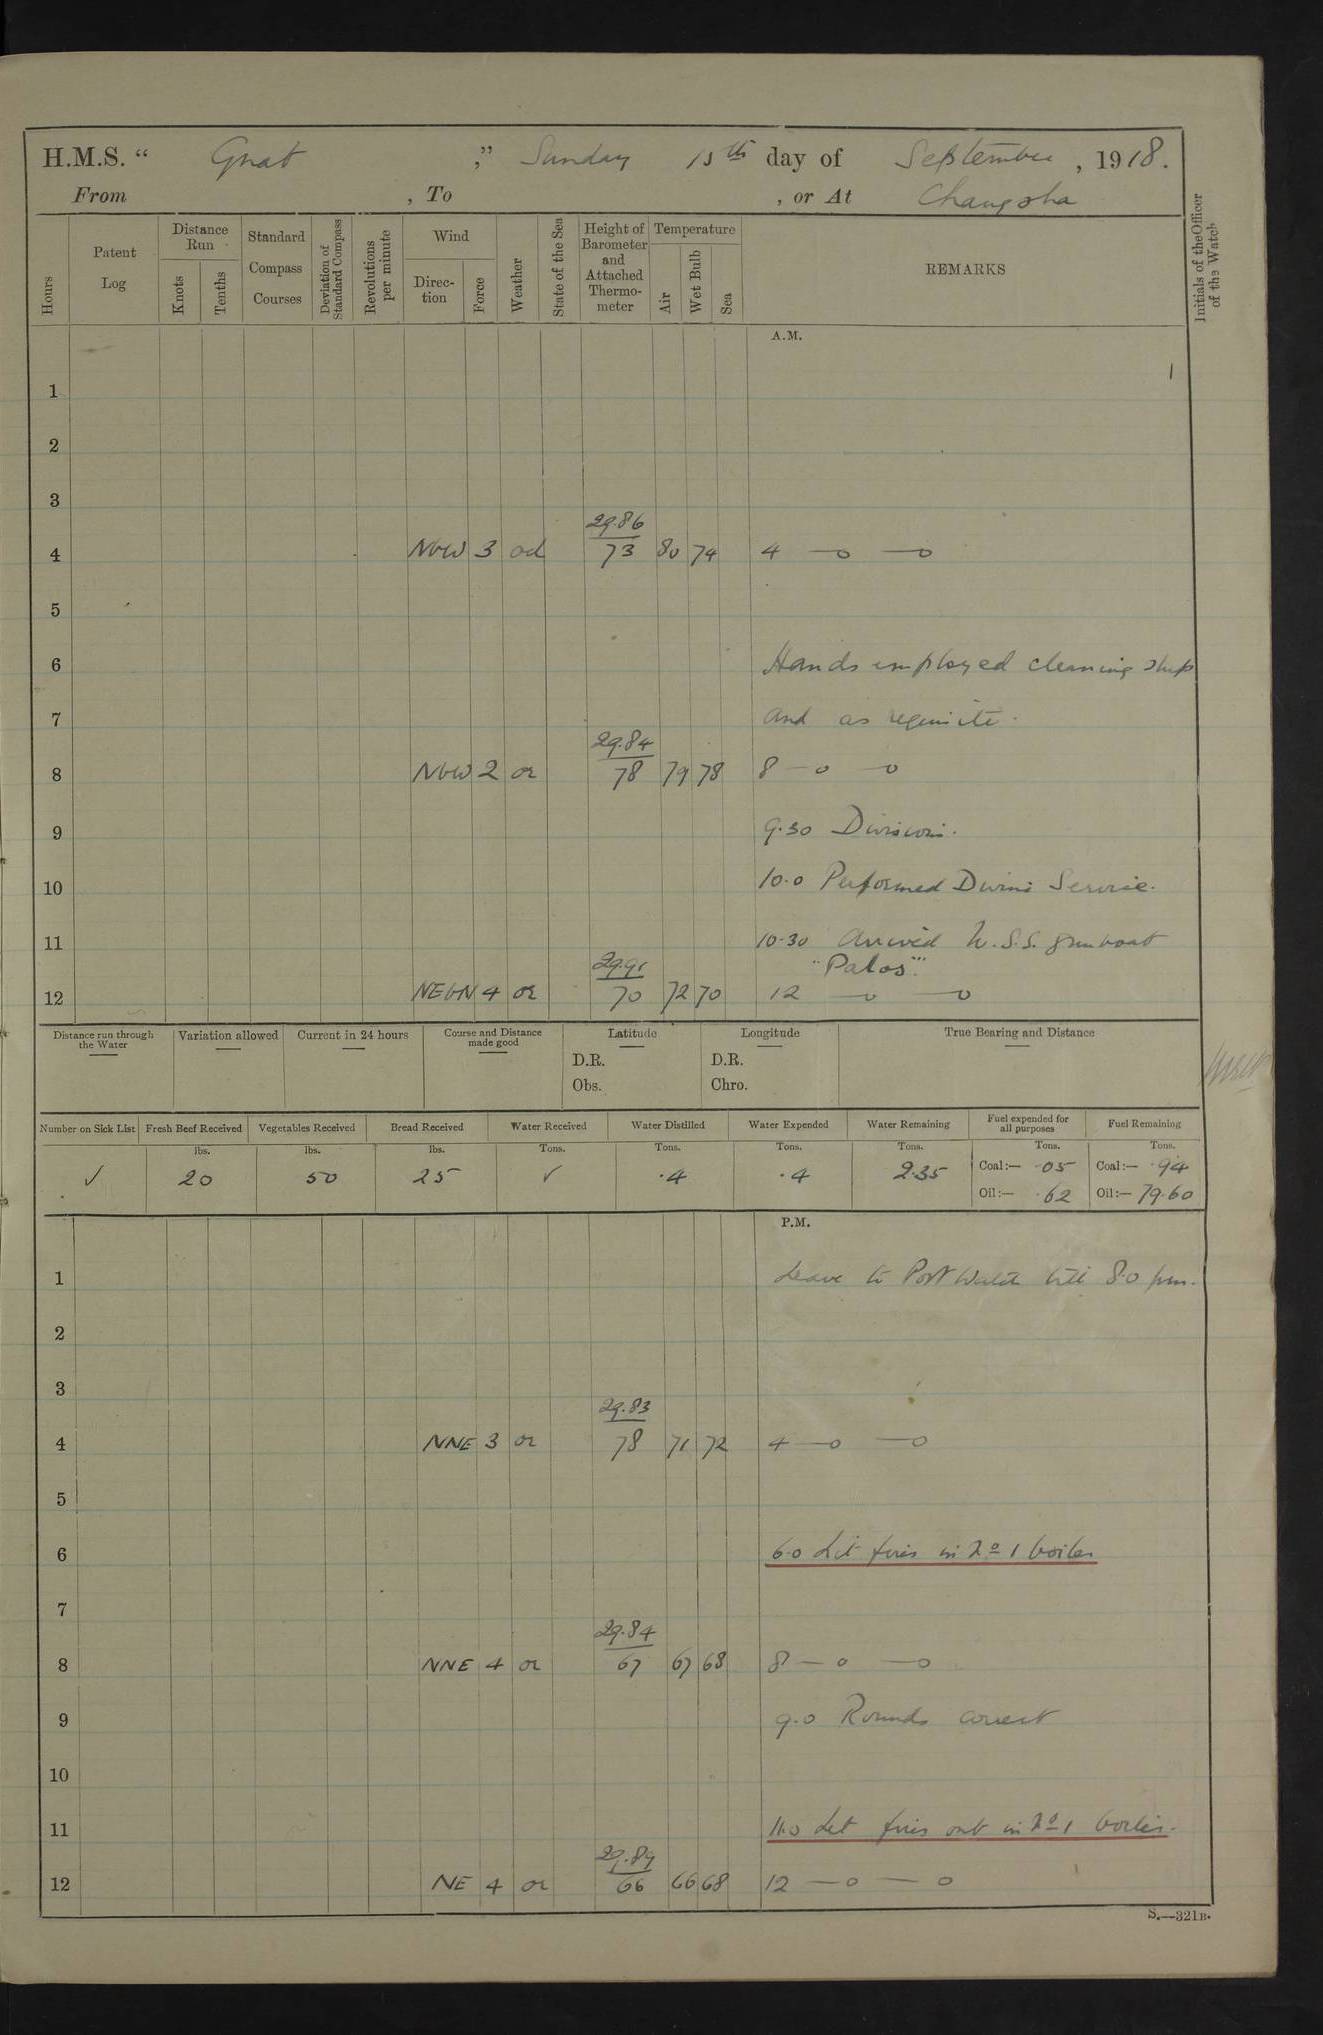 H.M.S. “ Gnat ,” Sunday 15th day of September , 1918.
From , To , or At Changsha
Hours
Patent Log
Distance Run
Knots
Tenths
Standard Compass Courses
Deviation of Standard Compass
Revolutions per minute
Wind
Direc-tion
Force
Weather
State of the Sea
Height of Barometer and Attached Thermo-meter
Temperature
Air
Wet Bulb
Sea
REMARKS
Initials of the Officer of the Watch
A.M.
1
2
3
29.86
4 NbW 3 od 73 80 74 4 —o —o
5
6 Hands employed cleaning ship
7 and as requisite.
29.84
8 NbW 2 or 78 79 78 8 —o —o
9 9.30 Divisions.
10 10.0 Performed Divine Service.
11 10.30 Arrived U.S.S. gunboat
29.91 "Palos".
12 NEbN 4 or 70 72 70 12 —o —o
Distance run through the Water
Variation allowed
Current in 24 hours
Course and Distance made good
Latitude
D.R.
Obs.
Longitude
D.R.
Chro.
True Bearing and Distance
Number on Sick List Fresh Beef Received Vegetables Received Bread Received Water Received Water Distilled Water Expended Water Remaining Fuel expended for all purposes Fuel Remaining
lbs. lbs. lbs. Tons. Tons. Tons. Tons. Tons. Tons.
✓ 20 50 25 ✓ .4 .4 2.35 Coal:— .05 Coal:— .94
Oil:— .62 Oil:— 79.60
P.M.
1 Leave to Port Watch till 8.0 pm.
2
3
29.83
4 NNE 3 or 78 71 72 4 —o —o
5
6 6.0 Lit fires in No 1 boiler
7
29.84
8 NNE 4 or 67 67 68 8 —o —o
9 9.0 Rounds correct
10
11 11.0 Let fires out in No 1 boiler.
29.89
12 NE 4 or 66 66 68 12 —o —o
S.—321B.